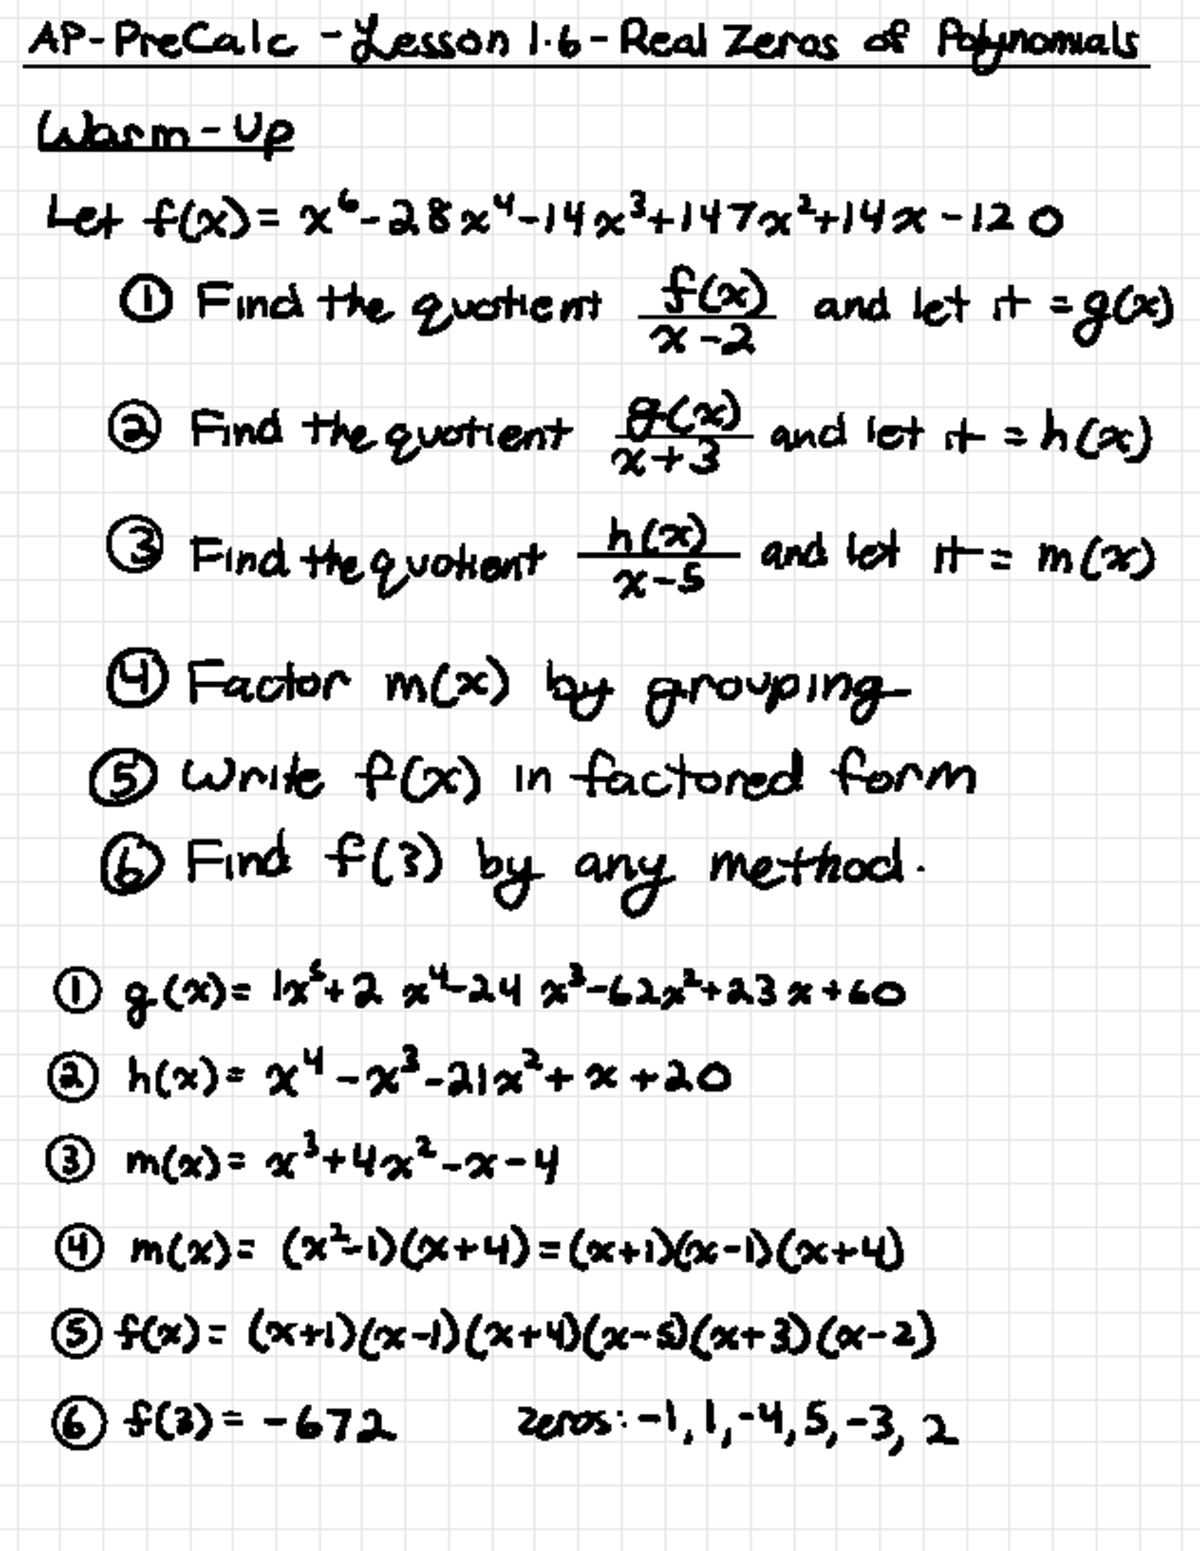 AP-PreCalc - Lesson 1.6 - Real Zeros of Polynomials
Warm-Up
Let f(x) = x⁶ - 28x⁴ - 14x³ + 147x² + 14x - 120
① Find the quotient f(x)/(x-2) and let it = g(x)
② Find the quotient g(x)/(x+3) and let it = h(x)
③ Find the quotient h(x)/(x-5) and let it = m(x)
④ Factor m(x) by grouping
⑤ Write f(x) in factored form
⑥ Find f(3) by any method.
① g(x) = 1x⁵ + 2x⁴ - 24x³ - 62x² + 23x + 60
② h(x) = x⁴ - x³ - 21x² + x + 20
③ m(x) = x³ + 4x² - x - 4
④ m(x) = (x²-1)(x+4) = (x+1)(x-1)(x+4)
⑤ f(x) = (x+1)(x-1)(x+4)(x-5)(x+3)(x-2)
⑥ f(3) = -672 zeros: -1, 1, -4, 5, -3, 2